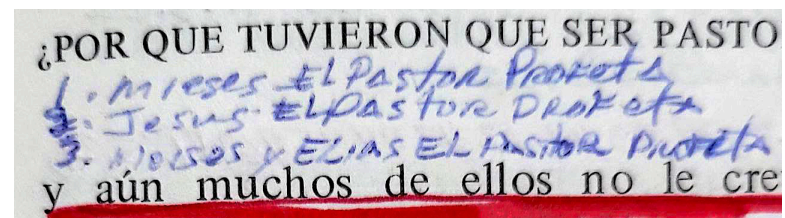 ¿POR QUE TUVIERON QUE SER PASTO
1. Mieses El Pastor Profeta
2. Jesus El Pastor Profeta
3. Moises y Elias El Pastor Profeta
y aún muchos de ellos no le cre